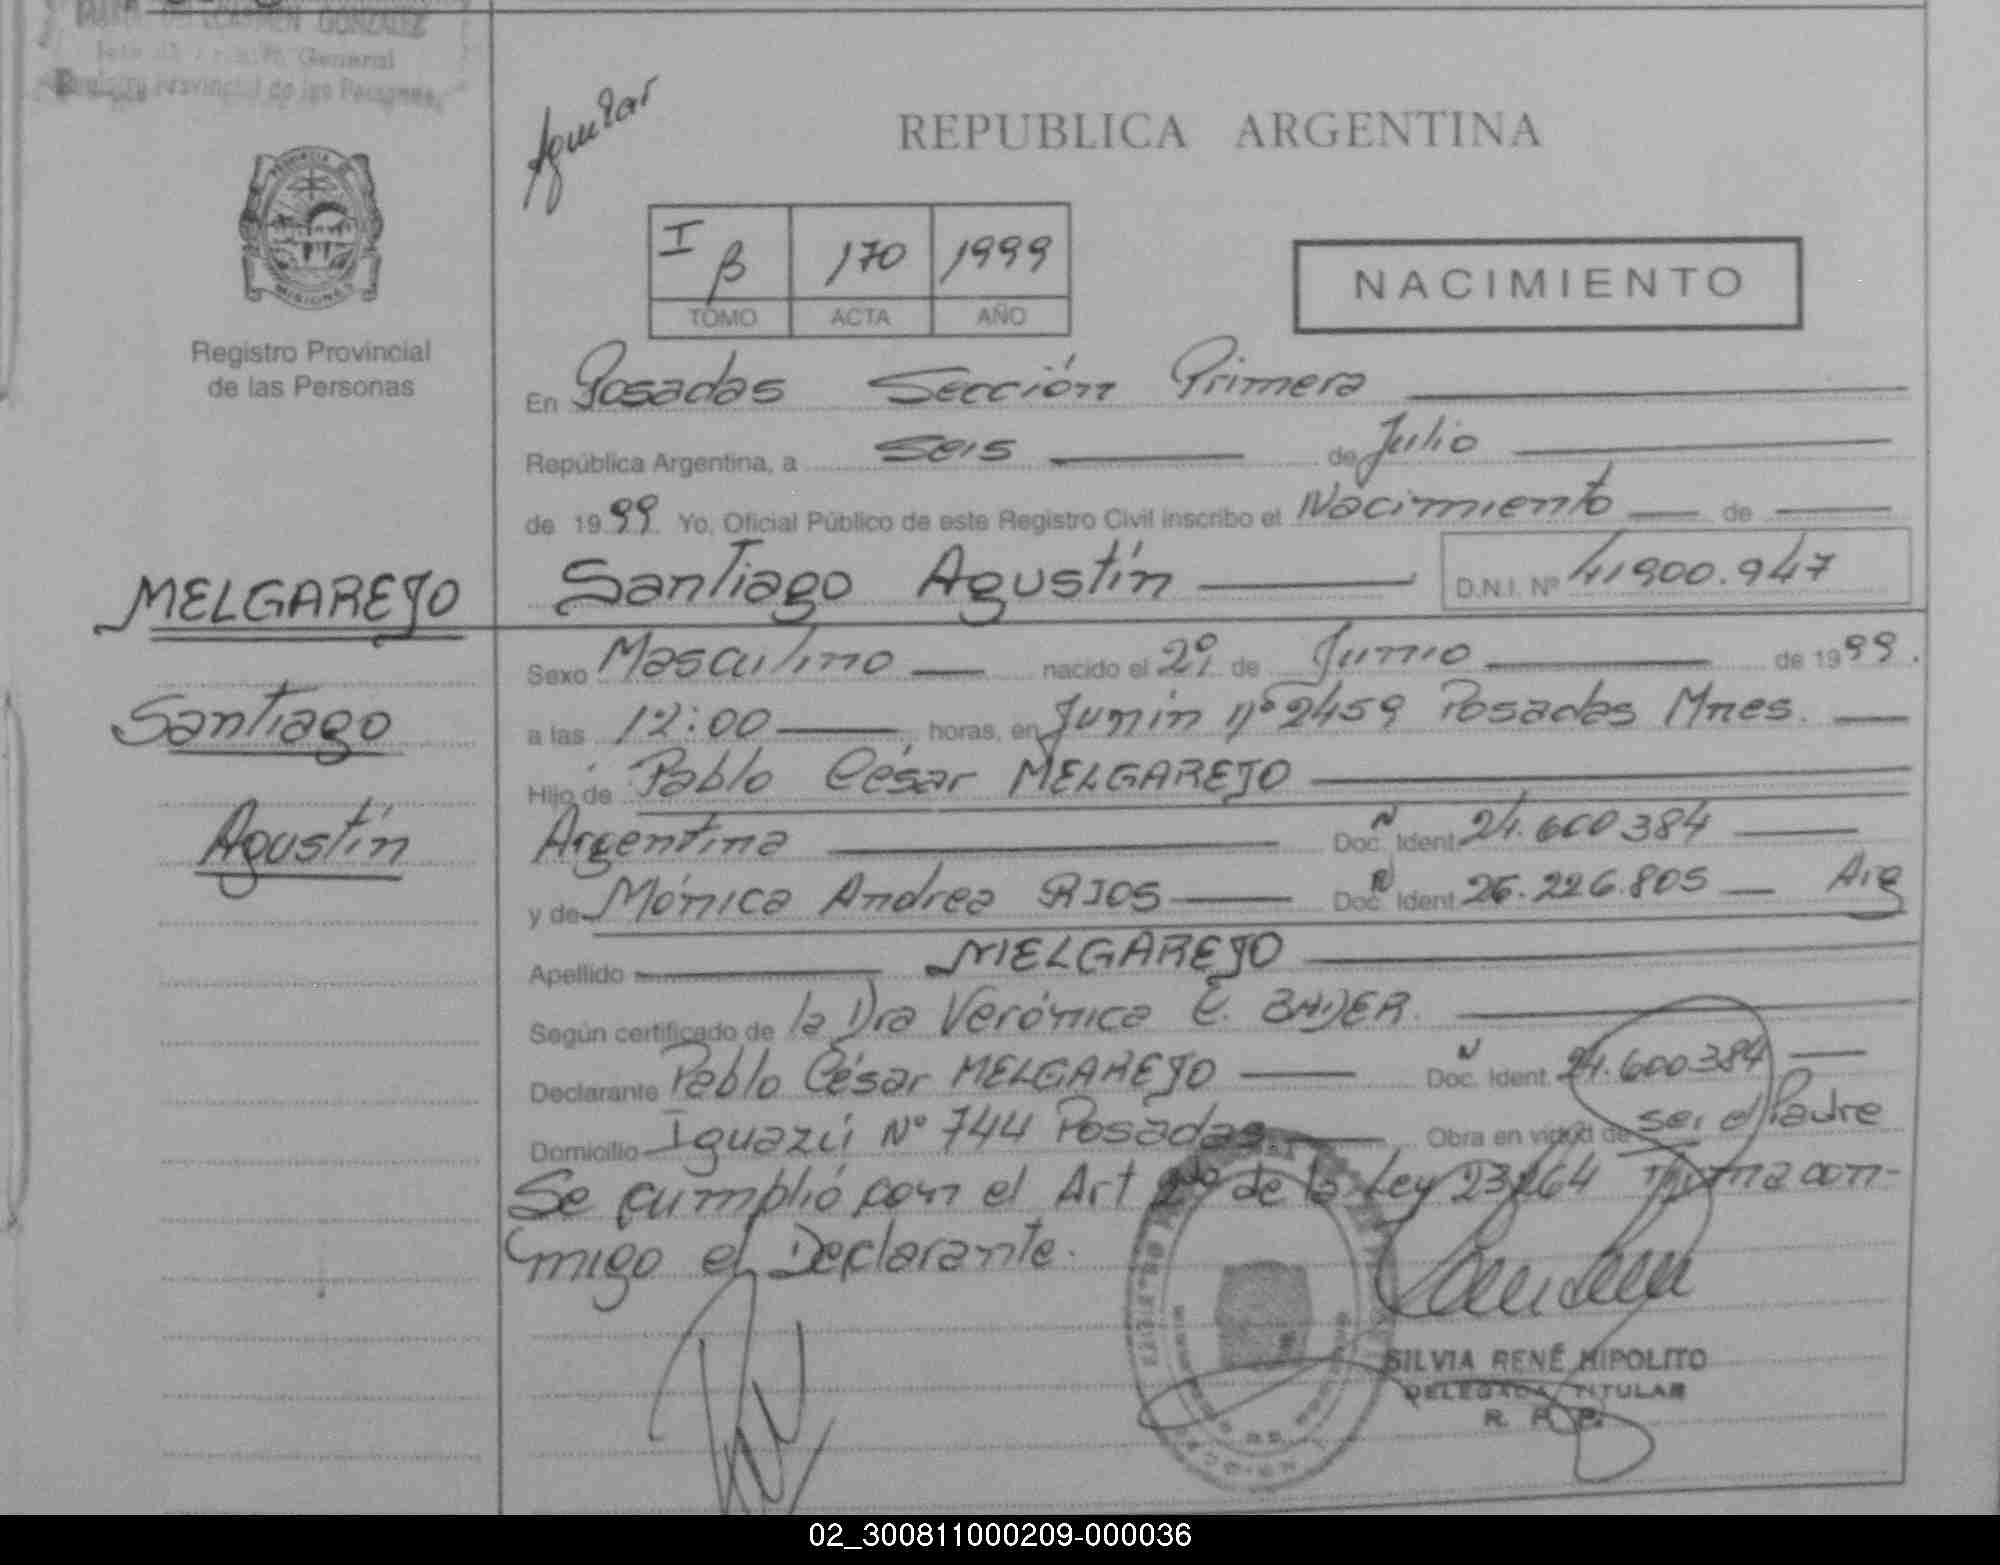 GONZALEZ
General
Registro Provincial de las Personas
Aguilar
PROVINCIA DE
MISIONES
Registro Provincial
de las Personas
REPUBLICA ARGENTINA
I B 170 1999
TOMO ACTA AÑO
NACIMIENTO
En Posadas Sección Primera
República Argentina, a Seis de Julio
de 1999. Yo, Oficial Público de este Registro Civil inscribo el Nacimiento de
MELGAREJO Santiago Agustín D.N.I. Nº 41900.947
Sexo Masculino nacido el 29 de Junio de 1999.
Santiago
a las 12:00 horas, en Junín nº 2459 Posadas Mnes.
Hijo de Pablo César MELGAREJO
Agustín
Argentina Doc. Ident. 24.600384
y de Mónica Andrea RIOS Doc. Ident. 26.226.805 Arg
Apellido MELGAREJO
Según certificado de la Dra Verónica E.
Declarante Pablo César MELGAREJO Doc. Ident. 24.600384
Domicilio Iguazú Nº 744 Posadas. Obra en virtud de ser el Padre
Se cumplió con el Art 2do de la Ley 23264 Firma con-
migo el Declarante.
SILVIA RENÉ HIPOLITO
DELEGADA TITULAR
R. P. P.
02_300811000209-000036